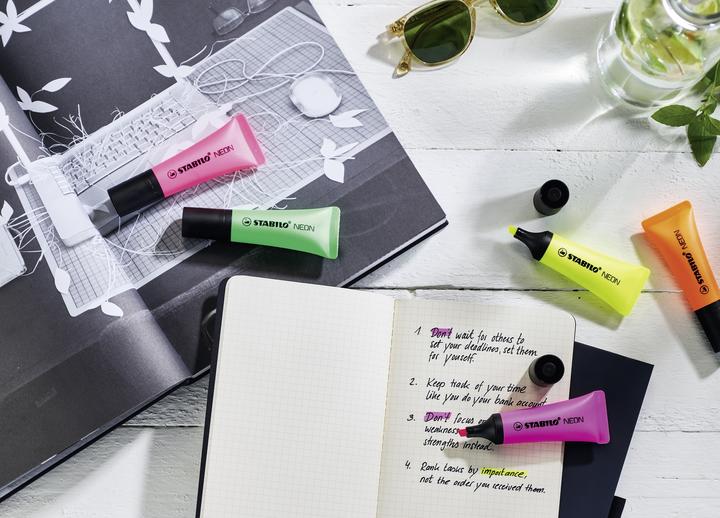 STABILO NEON
STABILO NEON
STABILO NEON
STABILO NEON
1. Don't wait for others to
set your deadlines, set them
for yourself.
2. Keep track of your time
like you do your bank account
3. Don't focus
weakness
strengths instead.
STABILO NEON
4. Rank tasks by importance,
not the order you received them.